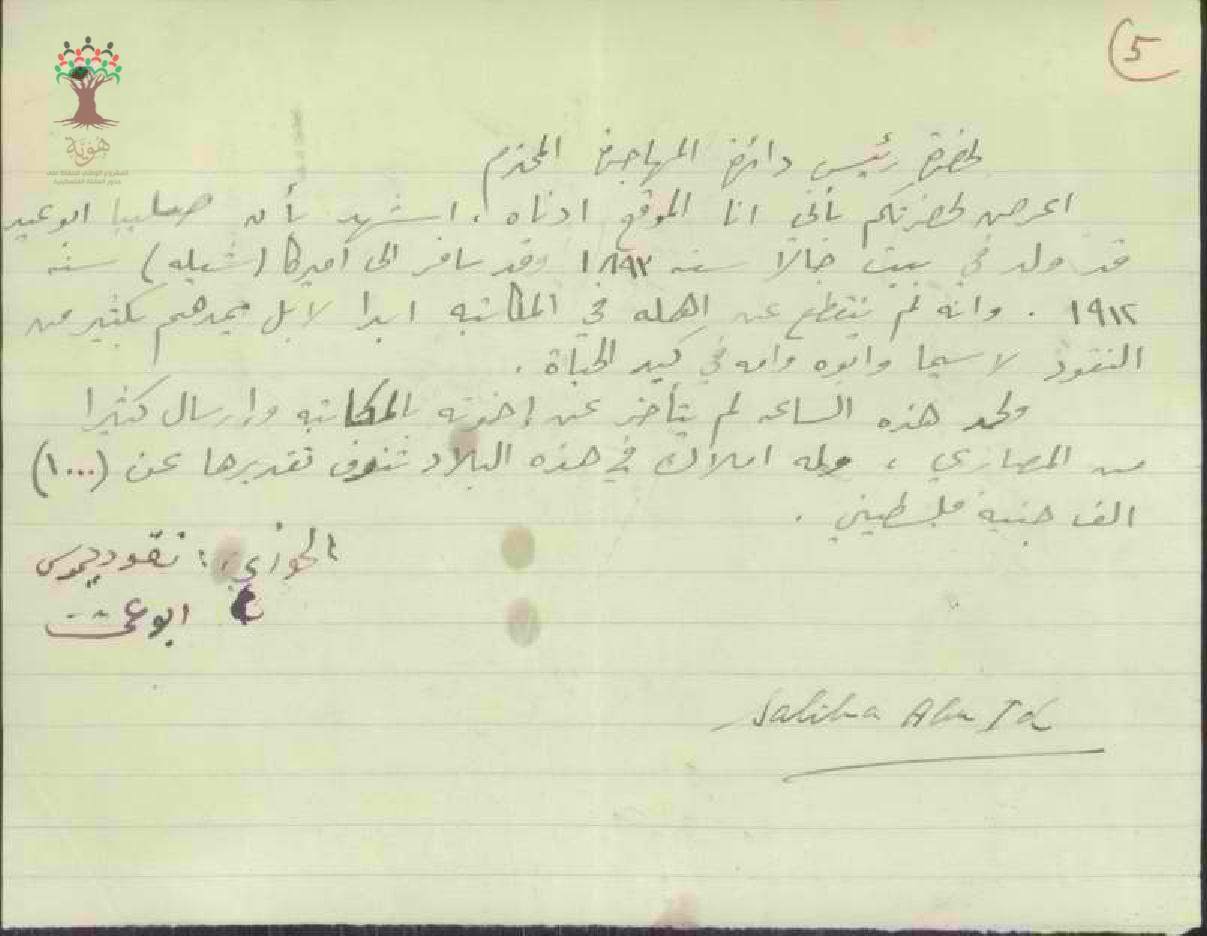 5
هوية
المشروع الوطني للحفاظ على
جذور العائلة الفلسطينية
لحضرة رئيس دائرة المهاجرة المحترم
اعرض لحضرتكم بأني انا الموقع ادناه ، اشهد بأن صليبا ابو عيد
قد ولد في بيت جالا سنه ١٨٩٣ وقد سافر الى أميركا (شيله) سنه
١٩١٢ . وانه لم ينقطع عن اهله في المكاتبه ابدا لا بل يمدهم بكثير من
النقود لا سيما وابوه وامه في قيد الحياة .
ولحد هذه الساعه لم يتأخر عن إخوته بالمكاتبه وارسال كثيرا
من المصاري ، وله املاك في هذه البلاد تنوف تقديرها عن (١٠٠٠)
الف جنيه فلسطيني .
الخوري :
ابو
Saliba Abu Id